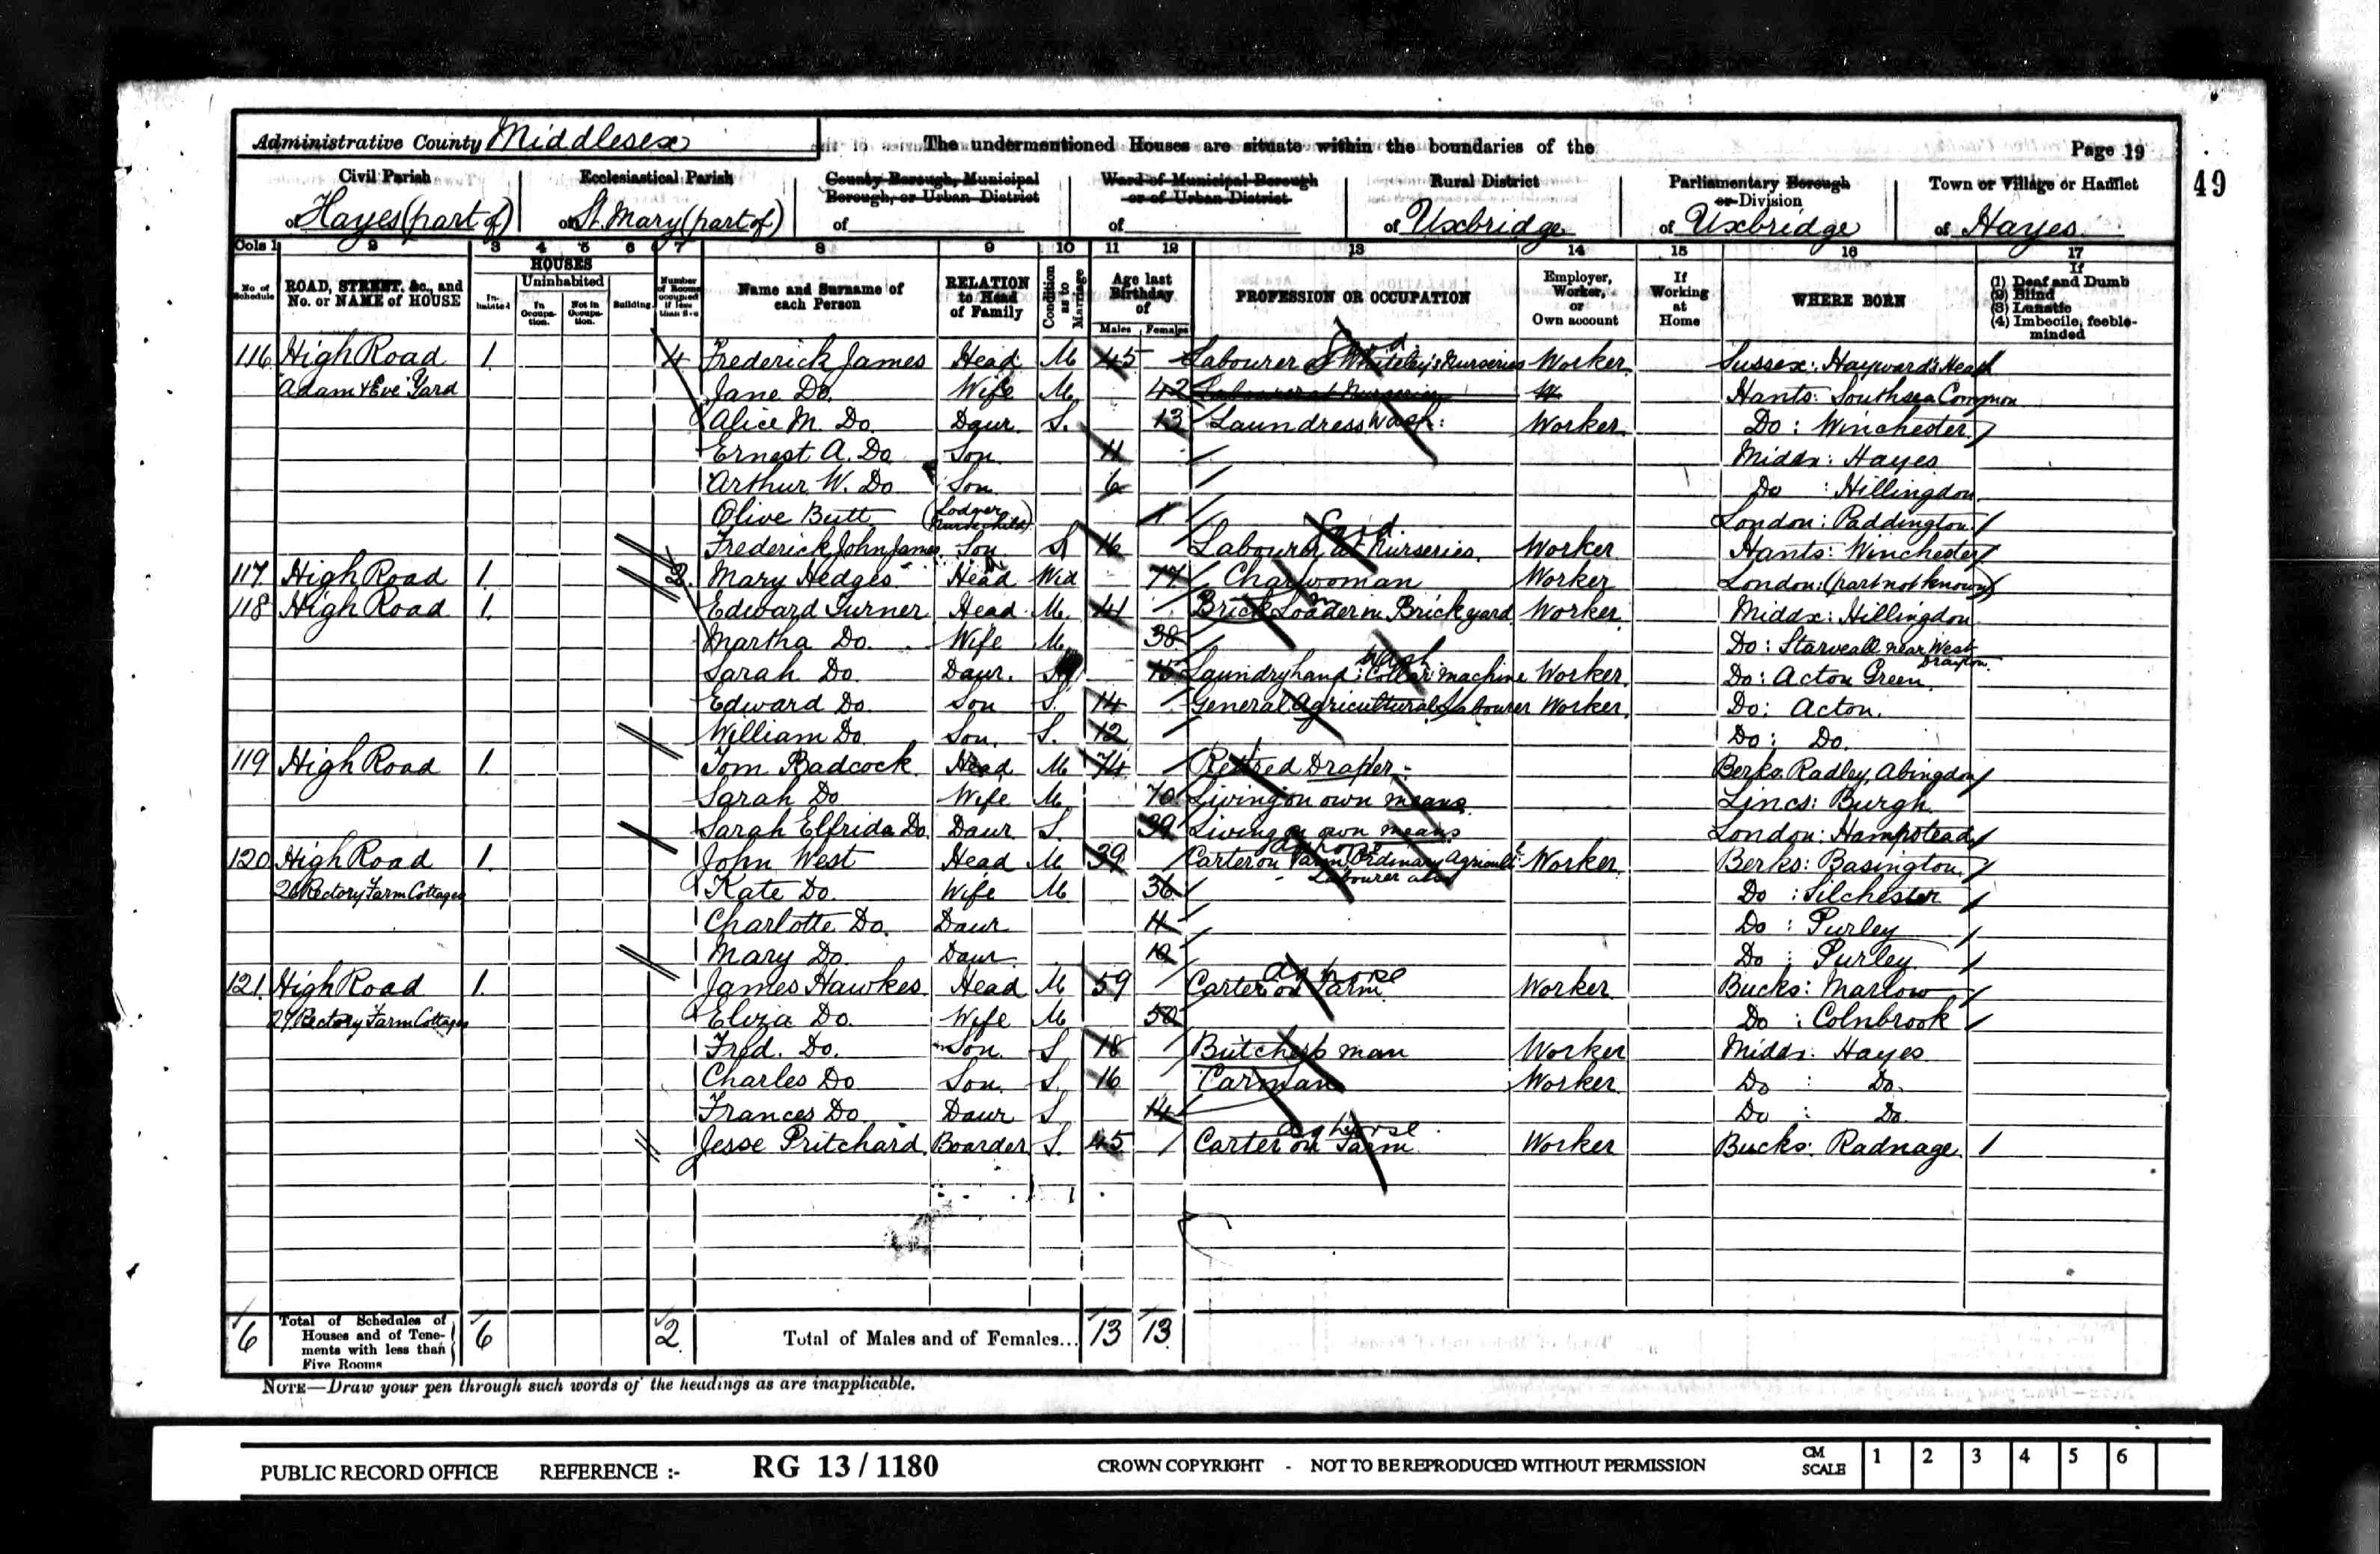 Administrative County Middlesex The undermentioned Houses are situate within the boundaries of the Page 19
49
Civil Parish Ecclesiastical Parish County Borough, Municipal Borough, or Urban District Ward of Municipal Borough or of Urban District Rural District Parliamentary Borough or Division Town or Village or Hamlet
of Hayes (part of) of St. Mary (part of) of of of Uxbridge of Uxbridge of Hayes
Cols 1 2 3 4 5 6 7 8 9 10 11 12 13 14 15 16 17
No. of Schedule ROAD, STREET, &c., and No. or NAME of HOUSE HOUSES Inhabited Uninhabited In Occupation. Not in Occupation. Building. Number of Rooms occupied if less than five Name and Surname of each Person RELATION to Head of Family Condition as to Marriage Age last Birthday of Males Females PROFESSION OR OCCUPATION Employer, Worker, or Own account If Working at Home WHERE BORN If (1) Deaf and Dumb (2) Blind (3) Lunatic (4) Imbecile, feeble-minded
116 High Road 1. 4 Frederick James Head M 45 Labourer at Whiteley's Nurseries Worker Sussex: Hayward's Heath
Adam & Eve Yard Jane Do. Wife M. 42 Labourer at Nurseries W Hants: Southsea Common
Alice M. Do. Daur. S. 13 Laundress Wash: Worker Do: Winchester
Ernest A. Do Son 11 Middx: Hayes
Arthur W. Do Son 6 Do : Hillingdon
Olive Butt (Lodger Nurse child) 1 London: Paddington
Frederick John James Son S 16 Labourer at Nurseries. Worker Hants: Winchester
117 High Road 1. 2. Mary Hedges Head Wid 77 Charwoman Worker London: (part not known)
118 High Road 1. Edward Turner Head M. 41 Brick Loader in Brickyard Worker Middx: Hillingdon
Martha Do. Wife M. 38 Do: Starveall near West Drayton.
Sarah Do. Daur. S 15 Laundryhand: Collar machine Wash Worker. Do: Acton Green
Edward Do. Son S. 14 General Agricultural Labourer Worker. Do: Acton.
William Do Son. S. 12 Do: Do.
119 High Road 1. Tom Badcock Head M 74 Retired Draper Berks Radley, Abingdon
Sarah Do Wife M. 70 Living on own means Lincs: Burgh
Sarah Elfrida Do. Daur S. 39 Living on own means London: Hampstead
120 High Road 1. John West Head M 39 Carter on Farm, Ordinary Agricult Worker Berks: Basington
26 Rectory Farm Cottages Kate Do. Wife M 36 Labourer also Do : Silchester
Charlotte Do. Daur 11 Do : Purley
Mary Do. Daur 10 Do : Purley
121. High Road 1. James Hawkes Head M 59 Carter on Farm ag horse Worker Bucks: Marlow
27 Rectory Farm Cottages Eliza Do. Wife M 50 Do : Colnbrook
Fred. Do. Son. S 18 Butcher's man Worker Middx: Hayes
Charles Do Son. S. 16 Carman Worker Do : Do.
Frances Do Daur S 14 Do : Do
Jesse Pritchard Boarder S. 45 Carter on Farm ag horse Worker Bucks: Radnage
6 Total of Schedules of Houses and of Tenements with less than Five Rooms 6 2 Total of Males and of Females... 13 13
NOTE—Draw your pen through such words of the headings as are inapplicable.
PUBLIC RECORD OFFICE REFERENCE :- RG 13 / 1180 CROWN COPYRIGHT - NOT TO BE REPRODUCED WITHOUT PERMISSION CM SCALE 1 2 3 4 5 6